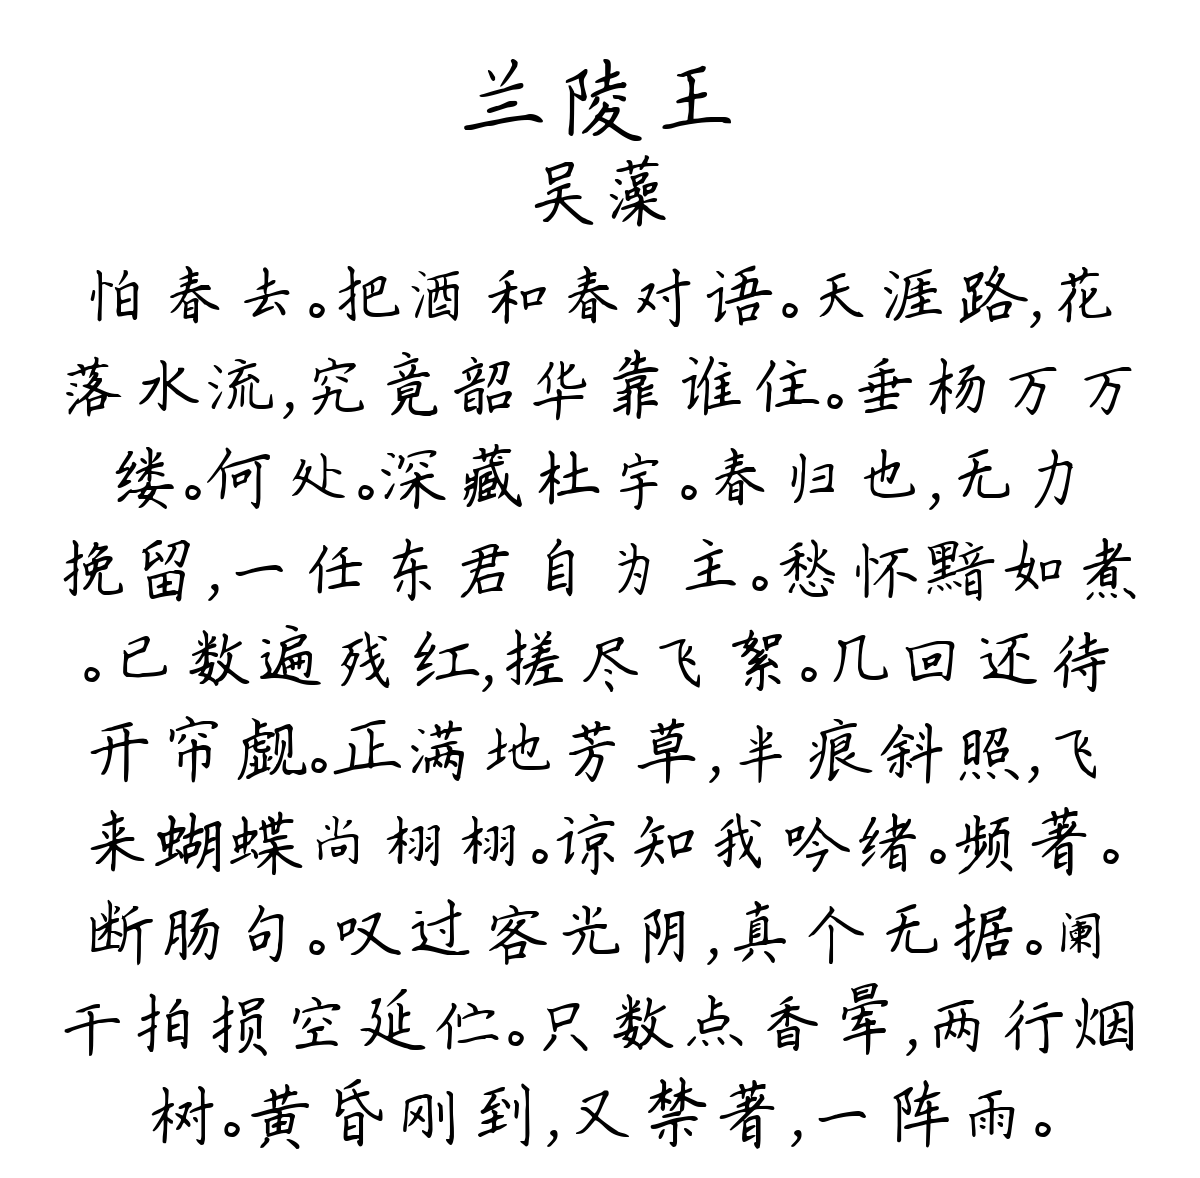 兰陵王
吴藻
怕春去。把酒和春对语。天涯路,花
落水流,究竟韶华靠谁住。垂杨万万
缕。何处。深藏杜宇。春归也,无力
挽留,一任东君自为主。愁怀黯如煮
。已数遍残红,搓尽飞絮。几回还待
开帘觑。正满地芳草,半痕斜照,飞
来蝴蝶尚栩栩。谅知我吟绪。频著。
断肠句。叹过客光阴,真个无据。阑
干拍损空延伫。只数点香晕,两行烟
树。黄昏刚到,又禁著,一阵雨。